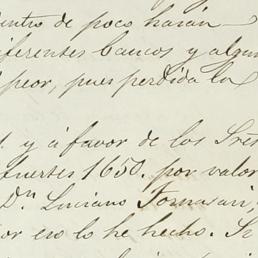 dentro de poco harán
diferentes bancos y algun
peor, pues perdida la
y á favor de los Sres
fuertes 1650. por valor
Dn. Luciano Tornasari,
por eso lo he hecho. Si